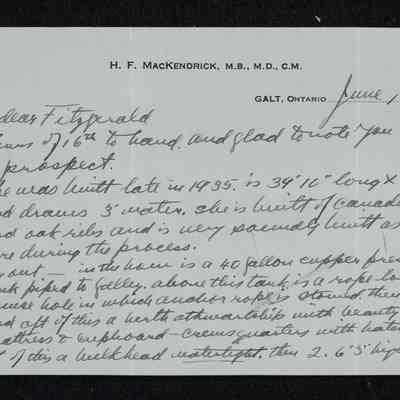 H. F. MACKENDRICK, M.B., M.D., C.M.
GALT, ONTARIO June 1
dear Fitzgerald
of 16th to hand, and glad to note you
prospect.
was built late in 1935. is 39' 10" long x
draws 3' water. she is built of Canada
oak ribs and is very soundly built as
during the process.
out — in the is a 40 gallon copper pres
piped to galley. above this tank is a rope lo
hole in which anchor rope is stowed. then
aft of this a berth athwartship with beauty
mattress & cupboard — crews quarters with hatch
of this a bulkhead watertight. then 2. 6'3" high